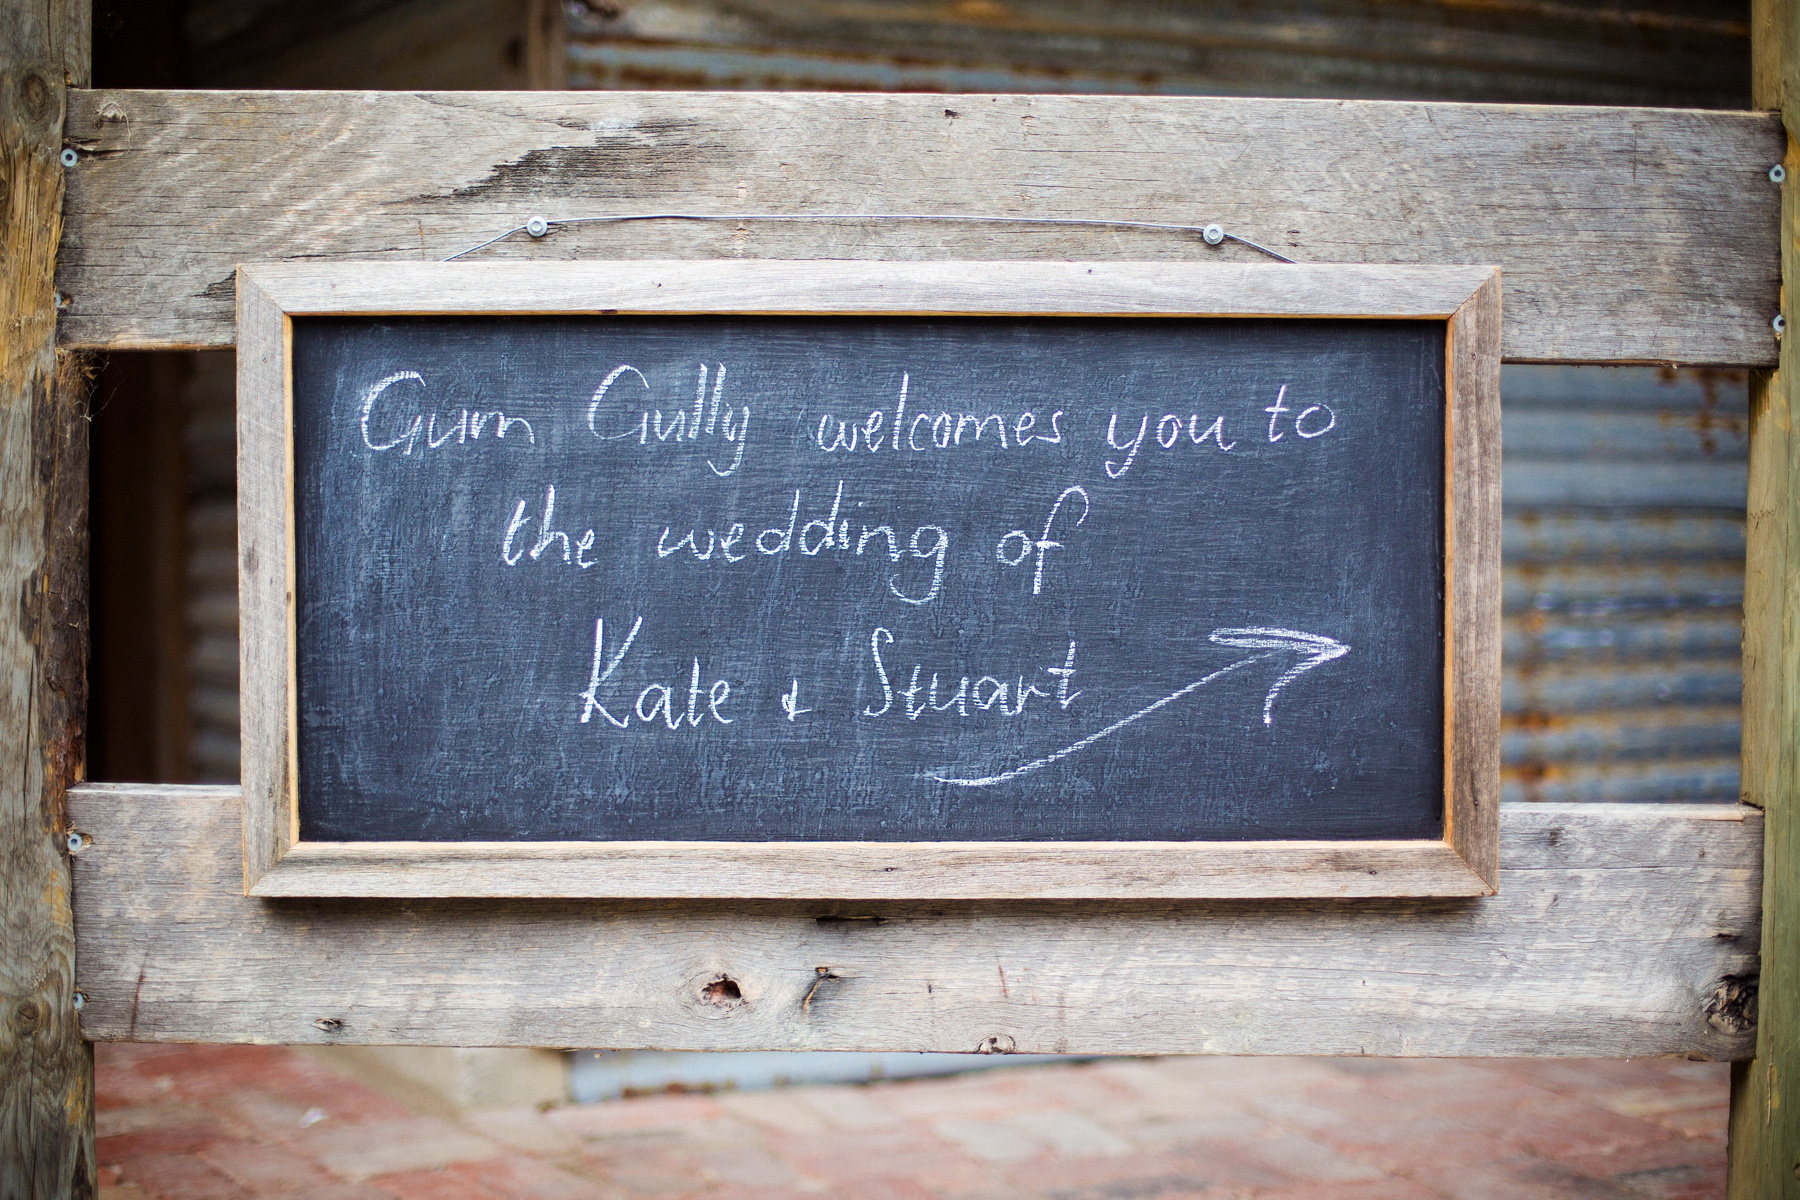 Gum Gully welcomes you to
the wedding of
Kate & Stuart